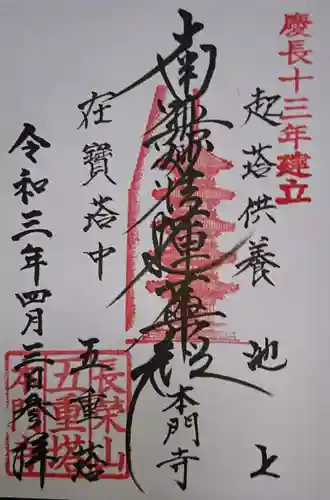 慶長十三年建立
起塔供養
池上
南無妙法蓮華経
本門寺
在寶塔中
五重塔
令和三年四月二日參拝
長榮山
五重塔
本門寺